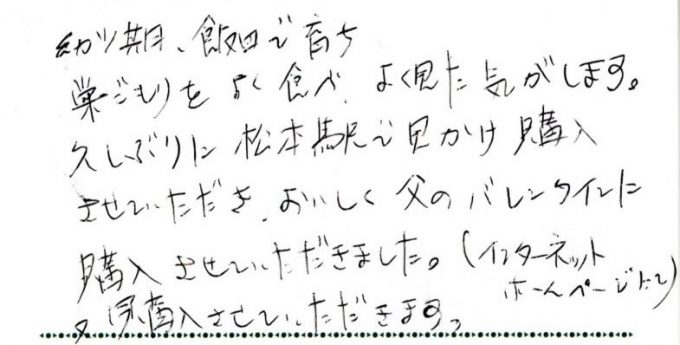 幼少期、飯田で育ち
巣ごもりをよく食べ、よく見た気がします。
久しぶりに松本駅で見かけ購入
させていただき、おいしく父のバレンタインに
購入させていただきました。(インターネット
ホームページにて)
又、購入させていただきます。